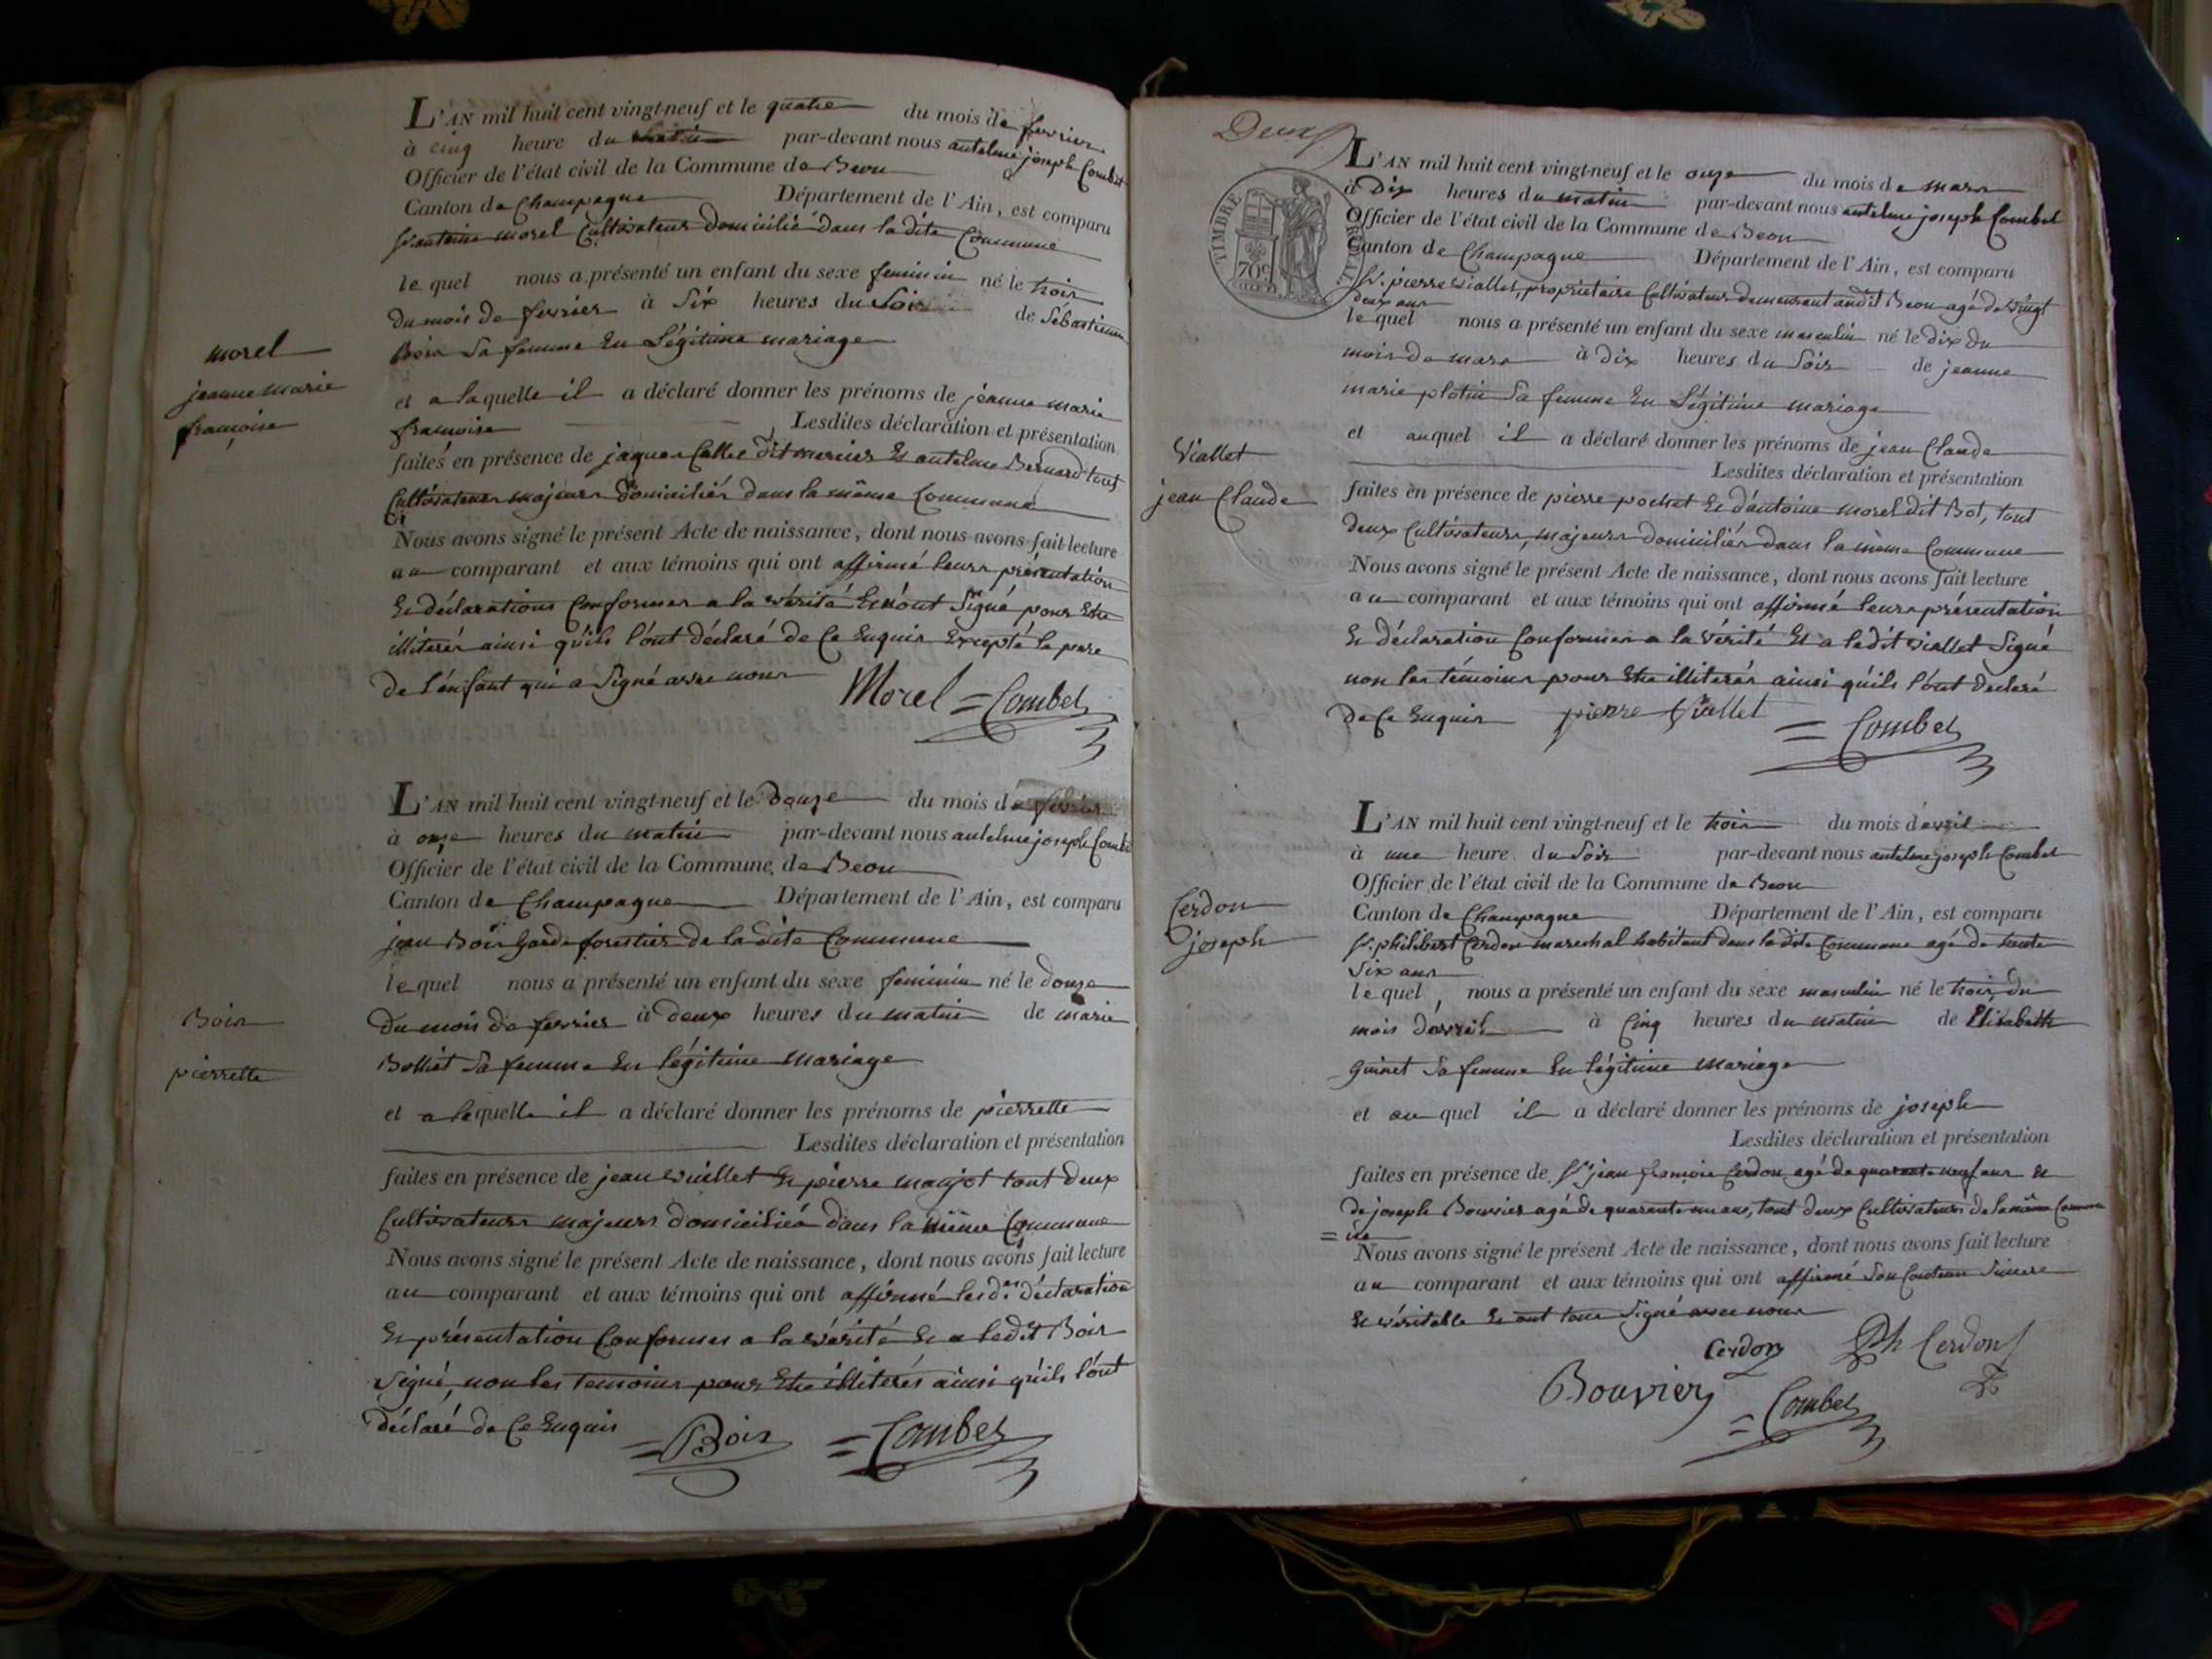 L'AN mil huit cent vingt-neuf et le quatre du mois de fevrier
à cinq heure du par-devant nous antelme joseph Combet
Officier de l'état civil de la Commune de Beon
Canton de Champagne Département de l'Ain, est comparu
Sr. antoine morel Cultivateur domicilié dans la dite Commune
le quel nous a présenté un enfant du sexe feminin né le trois
du mois de fevrier à Six heures du Soir de Sébastienne
Bois Sa femme En Légitime mariage
morel
jeanne marie
francoise
et a laquelle il a déclaré donner les prénoms de jeanne marie
francoise Lesdites déclaration et présentation
faites en présence de jaques Callet dit mercier Et antelme Bernard tous
Cultivateurs majeurs domiciliés dans la même Commune
Nous avons signé le présent Acte de naissance, dont nous avons fait lecture
au comparant et aux témoins qui ont affirmé leurs présentation
Et déclarations Conformes a la vérité Et n'ont Signé pour Etre
illiterés ainsi qu'ils l'ont déclaré de Ce Enquis Excepté le pere
de l'énfant qui a Signé avec nous Morel = Combet
L'AN mil huit cent vingt-neuf et le douze du mois de fevrier
à onze heures du matin par-devant nous antelme joseph Combet
Officier de l'état civil de la Commune de Beon
Canton de Champagne Département de l'Ain, est comparu
jean Bois Garde forestier de la dite Commune
le quel nous a présenté un enfant du sexe feminin né le douze
du mois de fevrier à deux heures du matin de marie
Bois
pierrette
Bolliet Sa femme En légitime mariage
et a laquelle il a déclaré donner les prénoms de pierrette
Lesdites déclaration et présentation
faites en présence de jean vuillet Et pierre manjot tout deux
Cultivateurs majeurs domiciliés dans la même Commune
Nous avons signé le présent Acte de naissance, dont nous avons fait lecture
au comparant et aux témoins qui ont affirmé les des. déclaration
Et présentation Conformes a la vérité Et a ledit Bois
Signé, non les temoins pour Etre illiterés ainsi qu'ils l'ont
déclaré de Ce Enquis = Bois = Combet
Deux
TIMBRE ROYAL
70c
L'AN mil huit cent vingt-neuf et le onze du mois de mars
à Dix heures du matin par-devant nous antelme joseph Combet
Officier de l'état civil de la Commune de Beon
Canton de Champagne Département de l'Ain, est comparu
Sr. pierre viallet, propriétaire Cultivateur demeurant audit Beon agé de vingt
deux ans
le quel nous a présenté un enfant du sexe masculin né le dix du
mois de mars à Dix heures du Soir de jeanne
marie plotin Sa femme En Légitime mariage
et auquel il a déclaré donner les prénoms de jean Claude
Viallet
jean Claude
Lesdites déclaration et présentation
faites en présence de pierre pochet Et d'antoine morel dit Bot, tout
deux Cultivateurs, majeurs domiciliés dans la même Commune
Nous avons signé le présent Acte de naissance, dont nous avons fait lecture
au comparant et aux témoins qui ont affirmé leurs présentation
Et déclaration Conformes a la vérité Et a ledit viallet Signé
non les témoins pour Etre illiterés ainsi qu'ils l'ont declaré
de Ce Enquis pierre Viallet = Combet
L'AN mil huit cent vingt-neuf et le trois du mois d'avril
à une heure du Soir par-devant nous antelme joseph Combet
Officier de l'état civil de la Commune de Beon
Cerdon
joseph
Canton de Champagne Département de l'Ain, est comparu
Sr. philibert Cerdon marechal habitant dans la dite Commune agé de trente
Six ans
le quel, nous a présenté un enfant du sexe masculin né le trois du
mois d'avril à Cinq heures du matin de Elisabeth
Guinet Sa femme En légitime mariage
et au quel il a déclaré donner les prénoms de joseph
Lesdites déclaration et présentation
faites en présence de Sr jean francois Cerdon agé de quarante neuf ans Et
de joseph Bouvier agé de quarante un ans, tout deux Cultivateurs de la même Commu
= ne
Nous avons signé le présent Acte de naissance, dont nous avons fait lecture
au comparant et aux témoins qui ont affirmé Son Contenu Sincere
Et véritable Et ont tous Signé avec nous
Cerdon Ph Cerdon
Bouvier = Combet